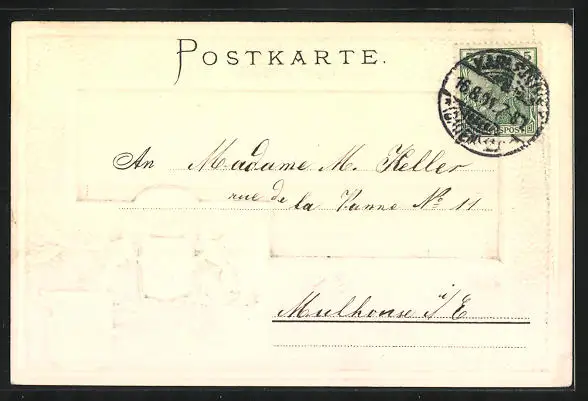 POSTKARTE.
5
KARLSRUHE
16.8.01.
(BADEN)
An Madame M. Keller
rue de la Vanne No 11
Mulhouse i/E